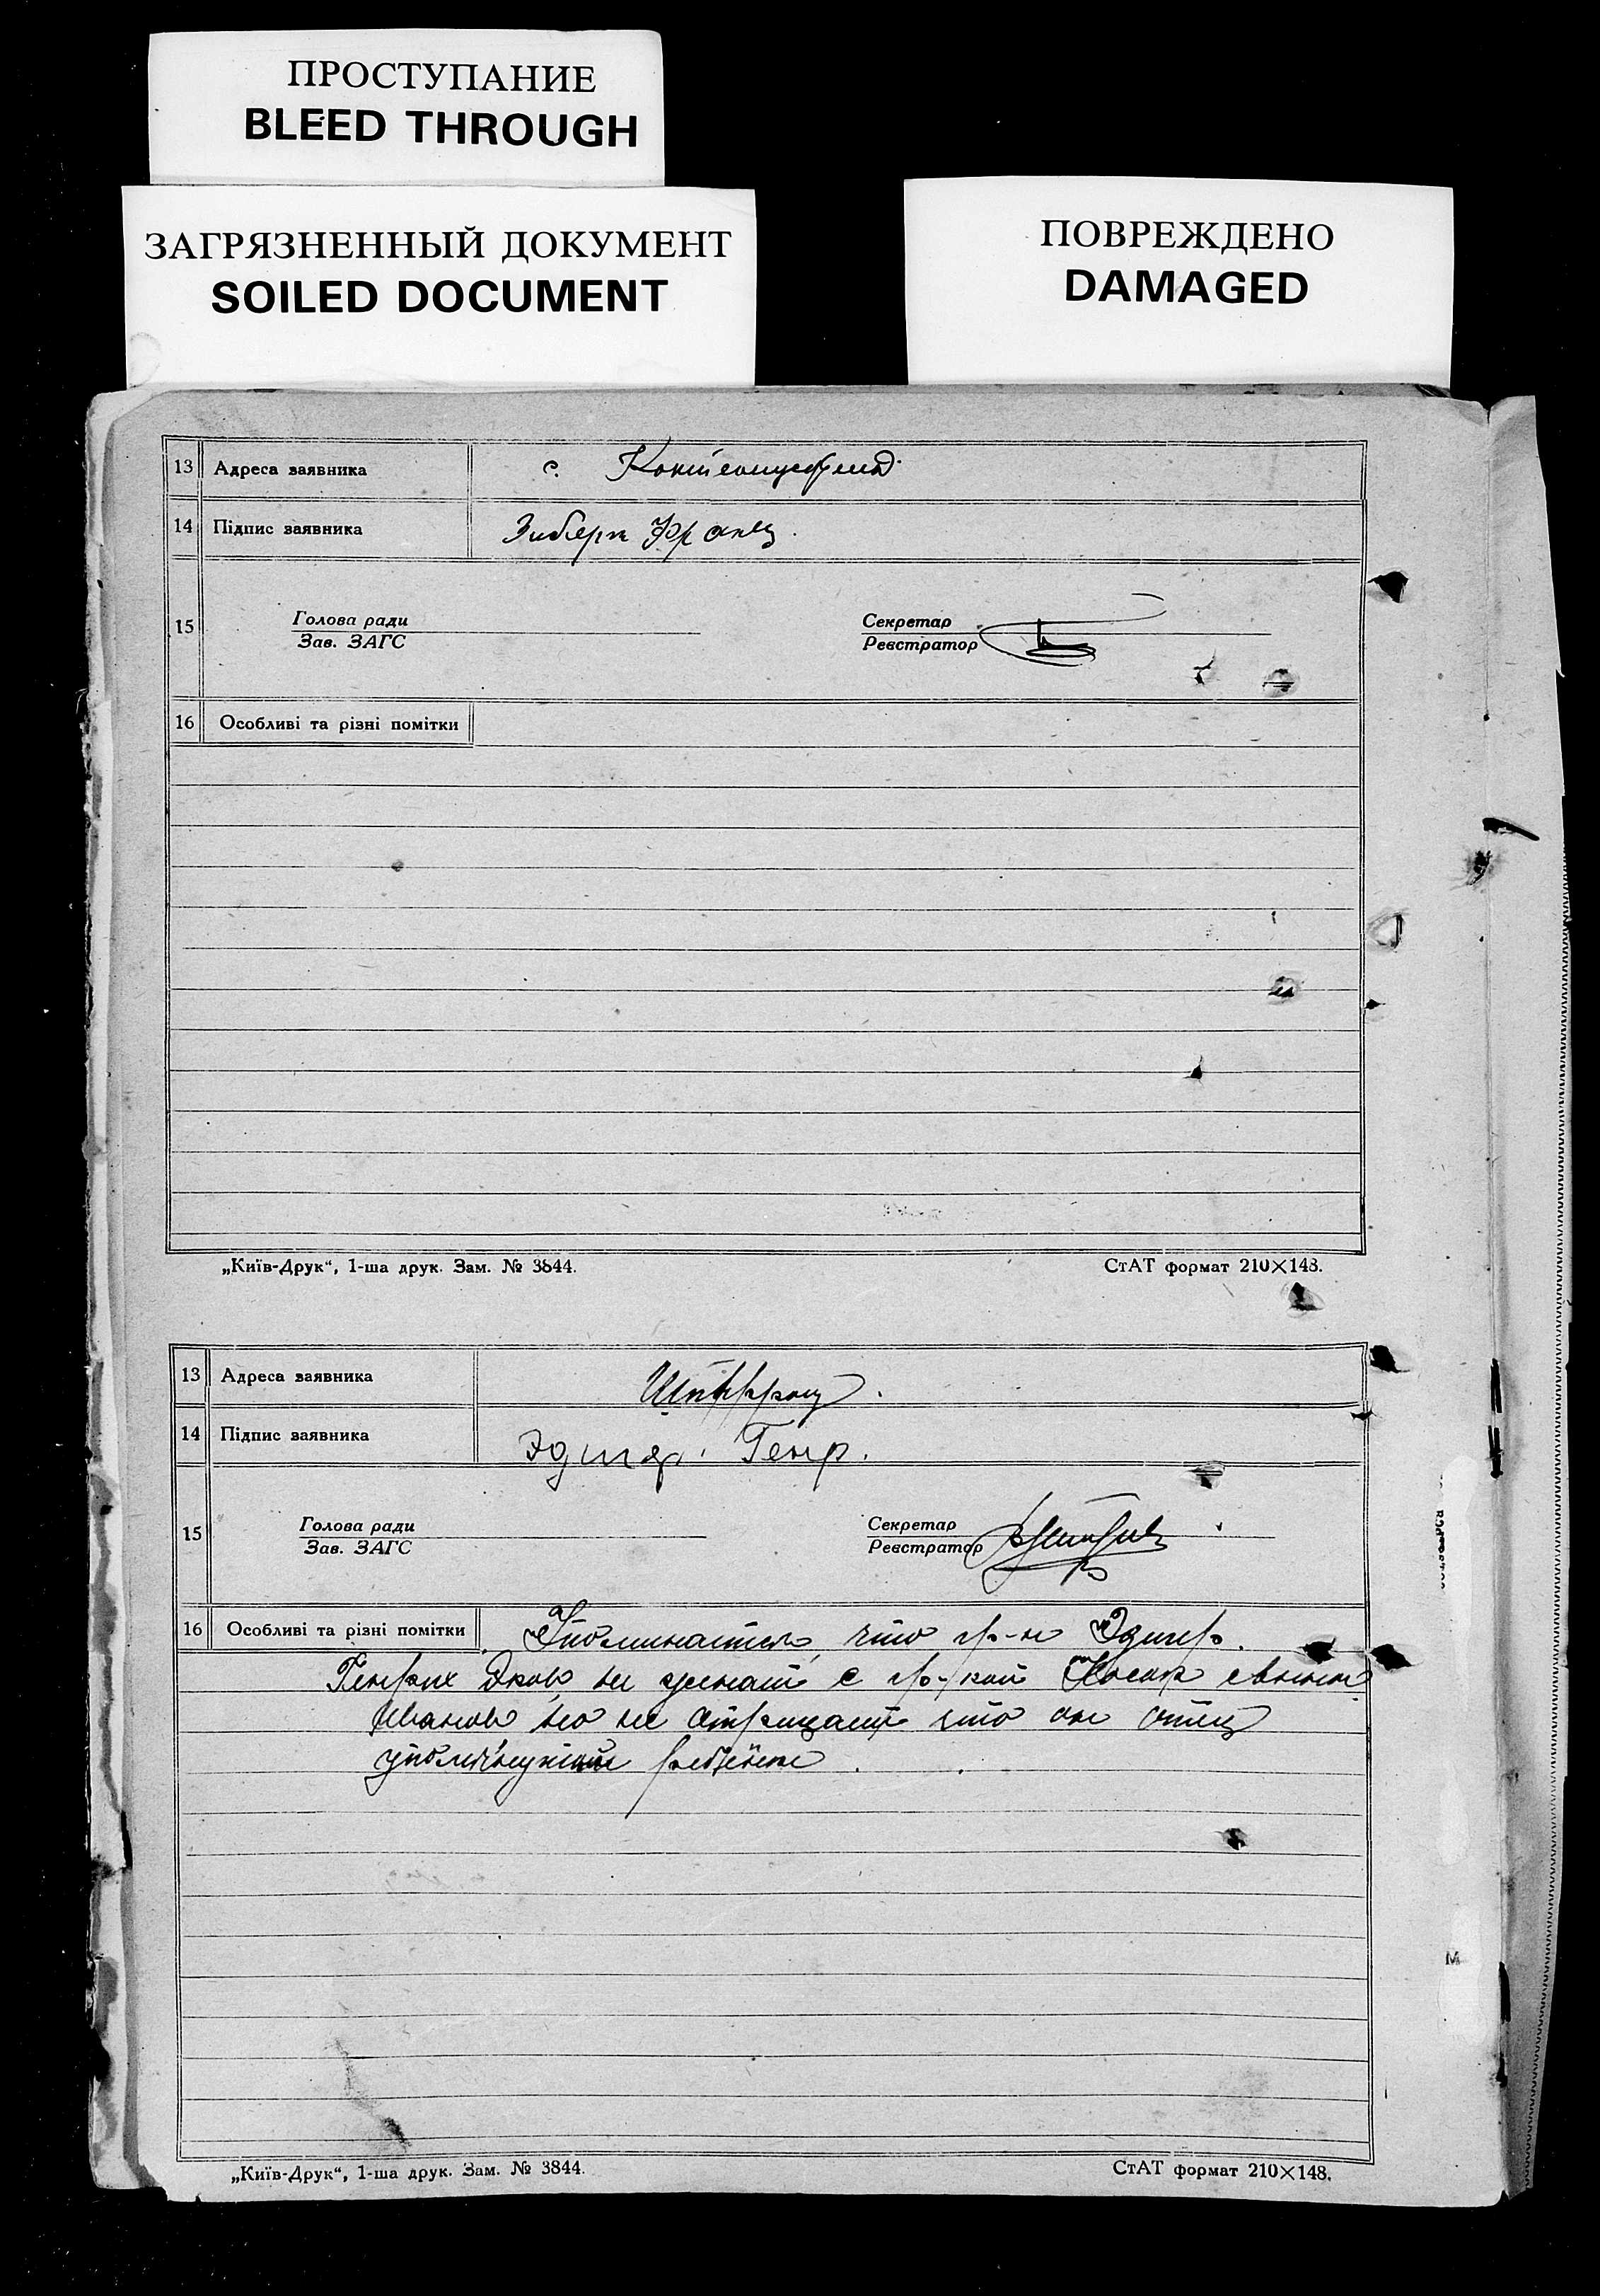 ПРОСТУПАНИЕ
BLEED THROUGH
ЗАГРЯЗНЕННЫЙ ДОКУМЕНТ
SOILED DOCUMENT
ПОВРЕЖДЕНО
DAMAGED
13 Адреса заявника с.
14 Підпис заявника Зиберт Франц.
15 Голова ради Секретар
Зав. ЗАГС Реєстратор
16 Особливі та різні помітки
„Київ-Друк“, 1-ша друк. Зам. № 3844. СтАТ формат 210×148.
13 Адреса заявника
14 Підпис заявника Эдигер. Генр.
15 Голова ради Секретар
Зав. ЗАГС Реєстратор
16 Особливі та різні помітки что гр-н Эдигер.
Генрих Яков не женат с гр-кой
Иванов но не отрицает что он отец
ребёнка.
„Київ-Друк“, 1-ша друк. Зам. № 3844. СтАТ формат 210×148.